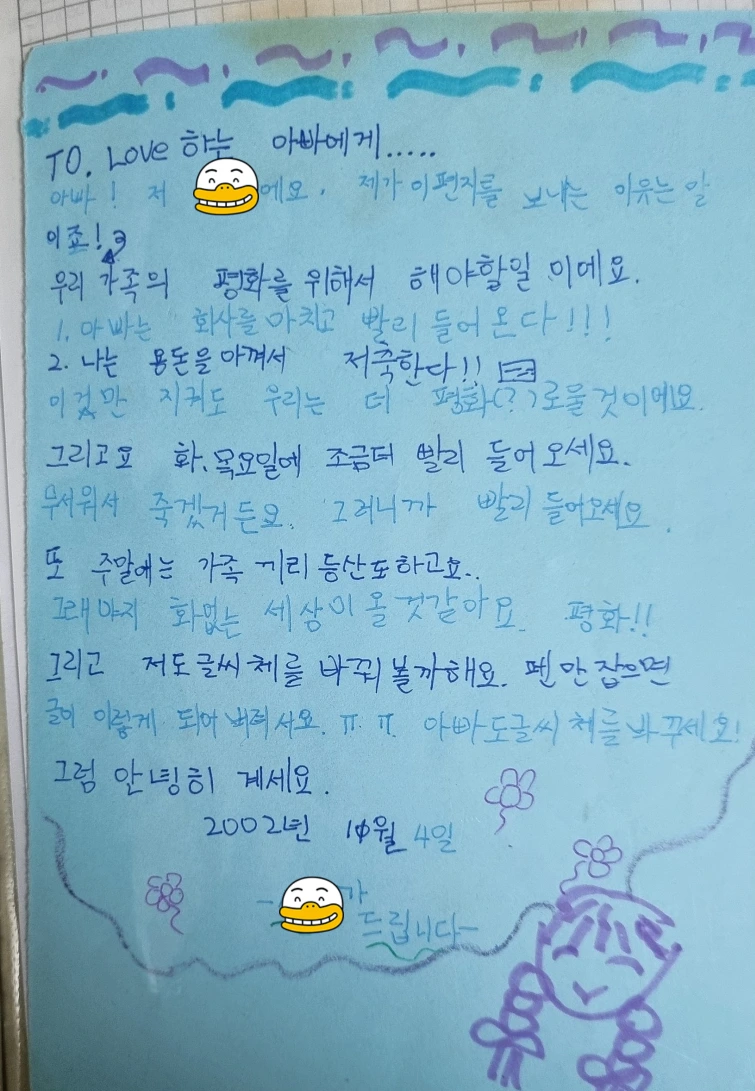 TO. Love 하는 아빠에게.....
아빠! 저 에요. 제가 이편지를 보내는 이유는 알
이죠!
우리 가족의 평화를 위해서 해야할일 이에요.
1. 아빠는 회사를 마치고 빨리 들어 온다!!!
2. 나는 용돈을 아껴서 저축한다!!
이것만 지켜도 우리는 더 평화(?)로울것이에요.
그리고요 화,목요일에 조금더 빨리 들어 오세요.
무서워서 죽겠거든요. 그러니까 빨리 들어오세요.
또 주말에는 가족끼리 등산도하고요..
그래야지 화없는 세상이 올것같아요. 평화!!
그리고 저도글씨체를 바꿔볼까해요. 펜만잡으면
글이 이렇게 되어버려서요. ㅠ.ㅠ. 아빠도글씨체를바꾸세요!
그럼 안녕히 계세요.
2002년 10월 4일
- 가
드립니다-